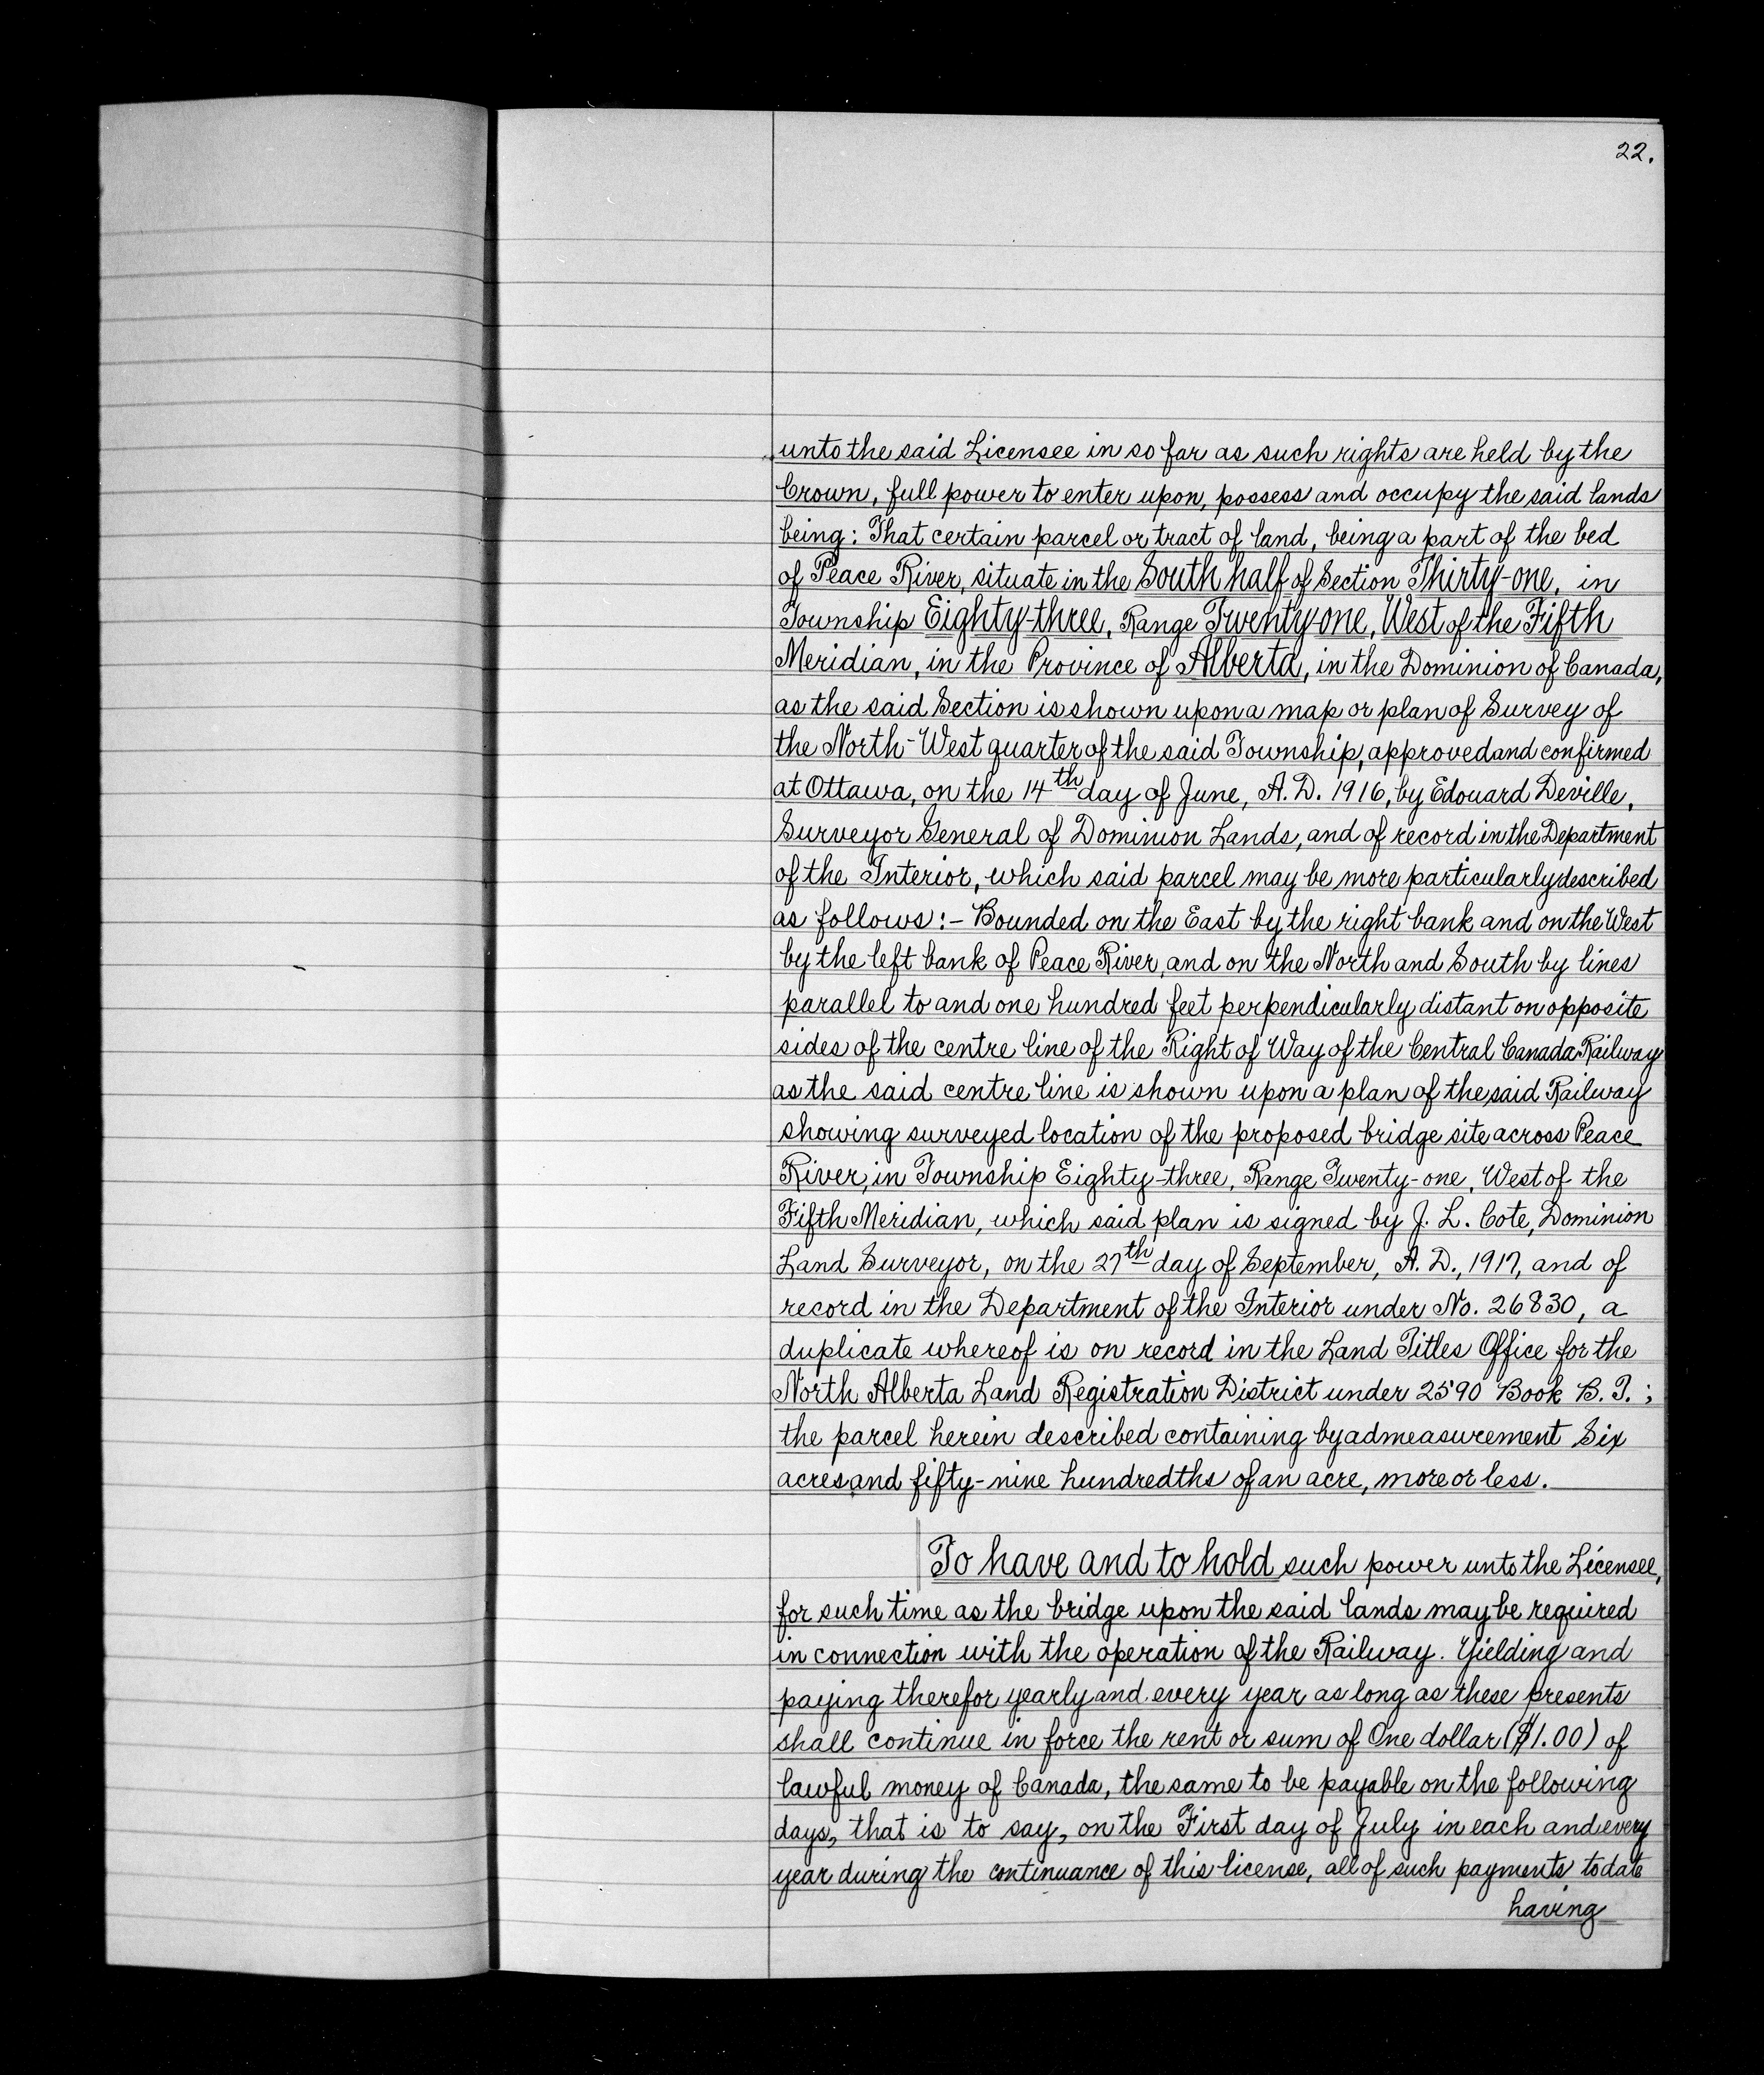 22.
unto the said Licensee in so far as such rights are held by the
Crown, full power to enter upon, possess and occupy the said lands
being: That certain parcel or tract of land, being a part of the bed
of Peace River, situate in the South half of Section Thirty-one, in
Township Eighty-three, Range Twenty-one, West of the Fifth
Meridian, in the Province of Alberta, in the Dominion of Canada,
as the said Section is shown upon a map or plan of Survey of
the North-West quarter of the said Township, approved and confirmed
at Ottawa, on the 14th day of June, A.D. 1916, by Edouard Deville,
Surveyor General of Dominion Lands, and of record in the Department
of the Interior, which said parcel may be more particularly described
as follows:- Bounded on the East by the right bank and on the West
by the left bank of Peace River, and on the North and South by lines
parallel to and one hundred feet perpendicularly distant on opposite
sides of the centre line of the Right of Way of the Central Canada Railway
as the said centre line is shown upon a plan of the said Railway
showing surveyed location of the proposed bridge site across Peace
River, in Township Eighty-three, Range Twenty-one, West of the
Fifth Meridian, which said plan is signed by J. L. Cote, Dominion
Land Surveyor, on the 27th day of September, A. D., 1917, and of
record in the Department of the Interior under No. 26830, a
duplicate whereof is on record in the Land Titles Office for the
North Alberta Land Registration District under 2590 Book B. T. ;
the parcel herein described containing by admeasurement Six
acres and fifty-nine hundredths of an acre, more or less.
To have and to hold such power unto the Licensee,
for such time as the bridge upon the said lands may be required
in connection with the operation of the Railway. Yielding and
paying therefor yearly and every year as long as these presents
shall continue in force the rent or sum of One dollar ($1.00) of
lawful money of Canada, the same to be payable on the following
days, that is to say, on the First day of July in each and every
year during the continuance of this license, all of such payments to date
having